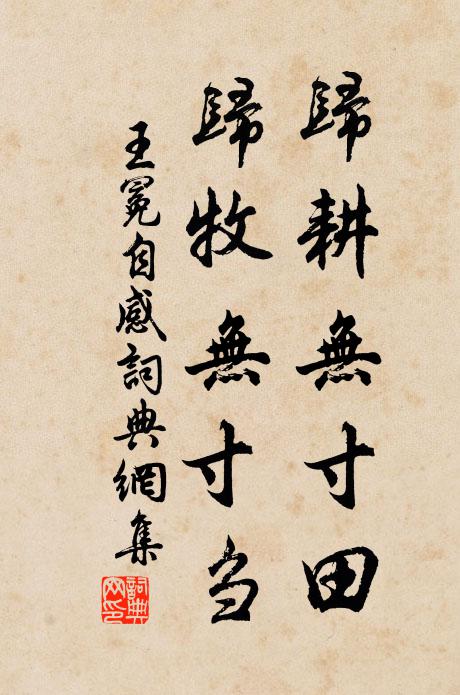 歸耕無寸田
歸牧無寸芻
王冕自感詞典網集
詞典
网印